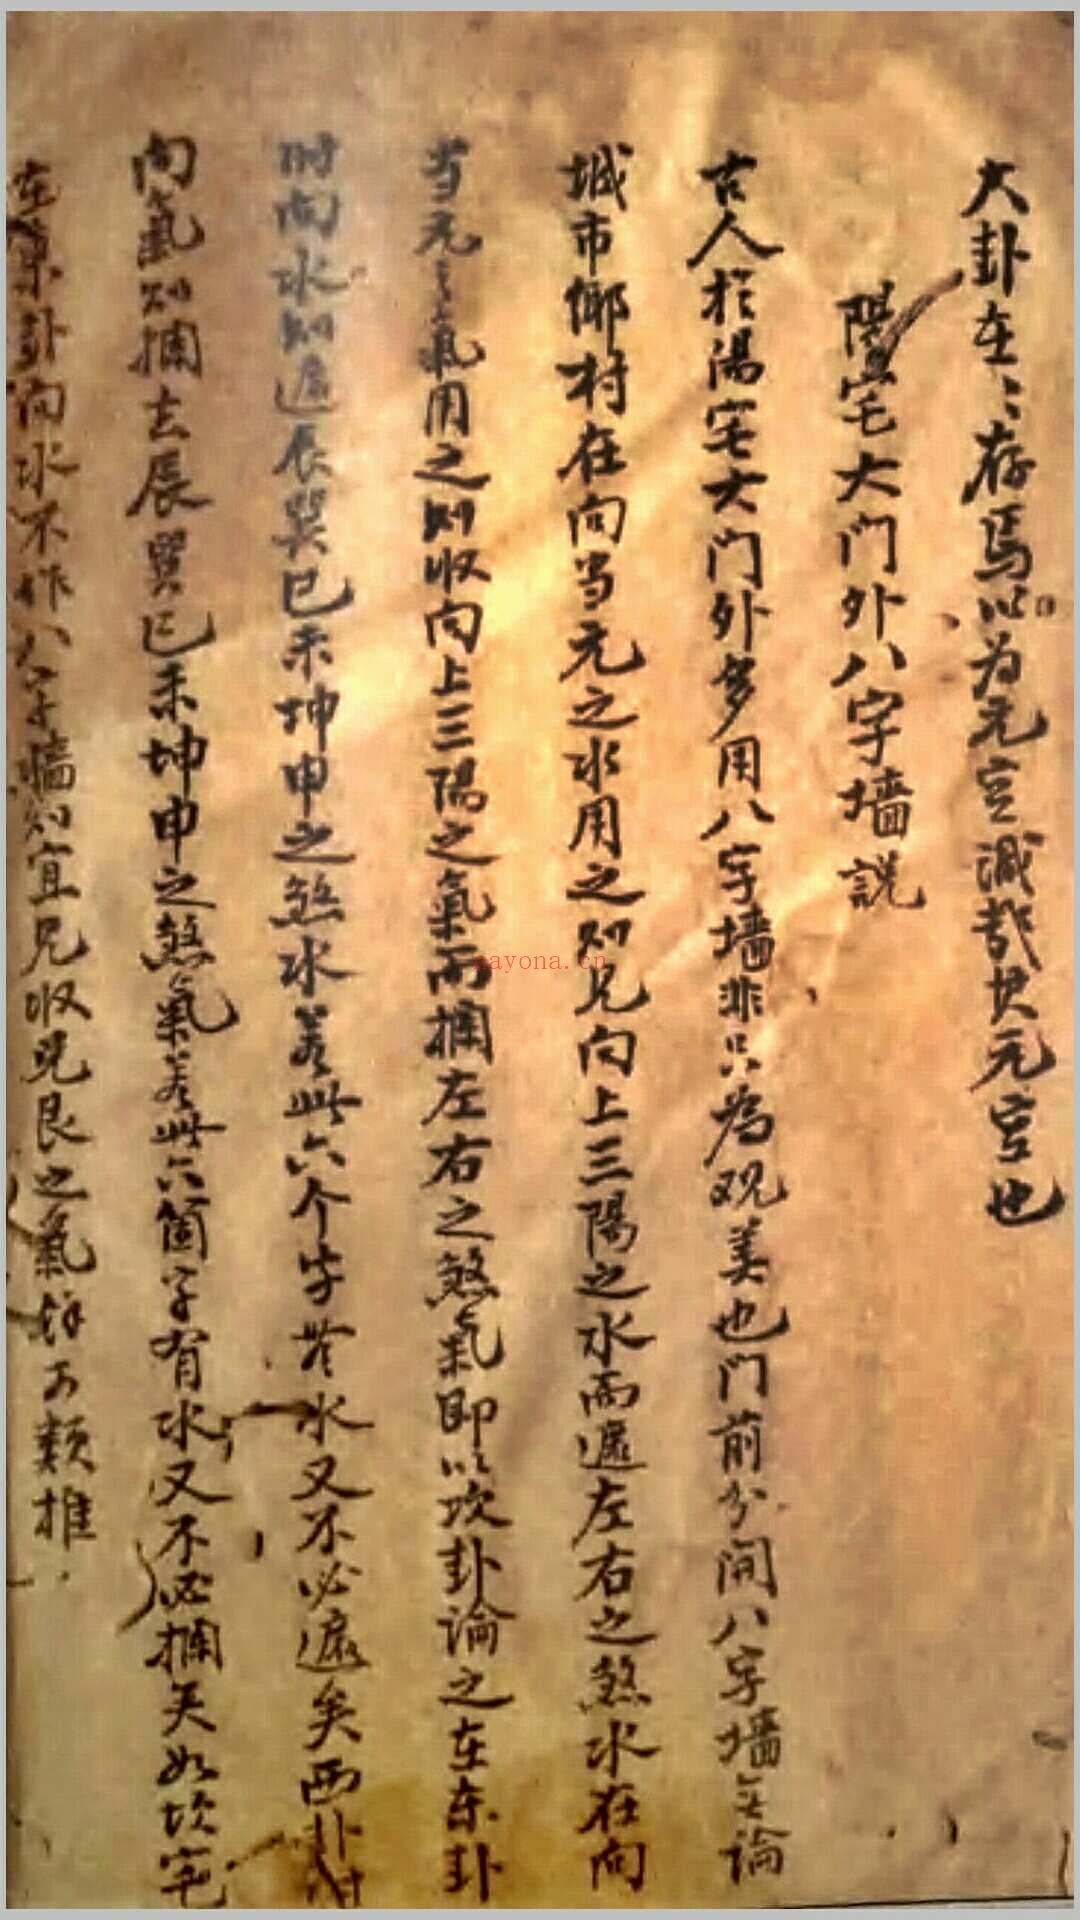 大卦在〻存焉以为元空诚哉其元空也
陽宅大门外八字墙説
古人於陽宅大门外多用八字墙非只為观美也门前分開八字墙无论
城市鄉村在向当元之水用之则见向上三陽之水而遮左右之煞水在向
当元之氣用之则收向上三陽之氣而攔左右之煞氣即以坎卦論之在东卦
时向水则遮辰巽巳未坤申之煞水若此六个字無水又不必遮矣西卦时
向氣则攔去辰巽巳未坤申之煞氣若此六箇字有水又不必攔矣如坎宅
在某卦向水不作八字墙则宜见收兑艮之氣餘可類推
rayona.cn